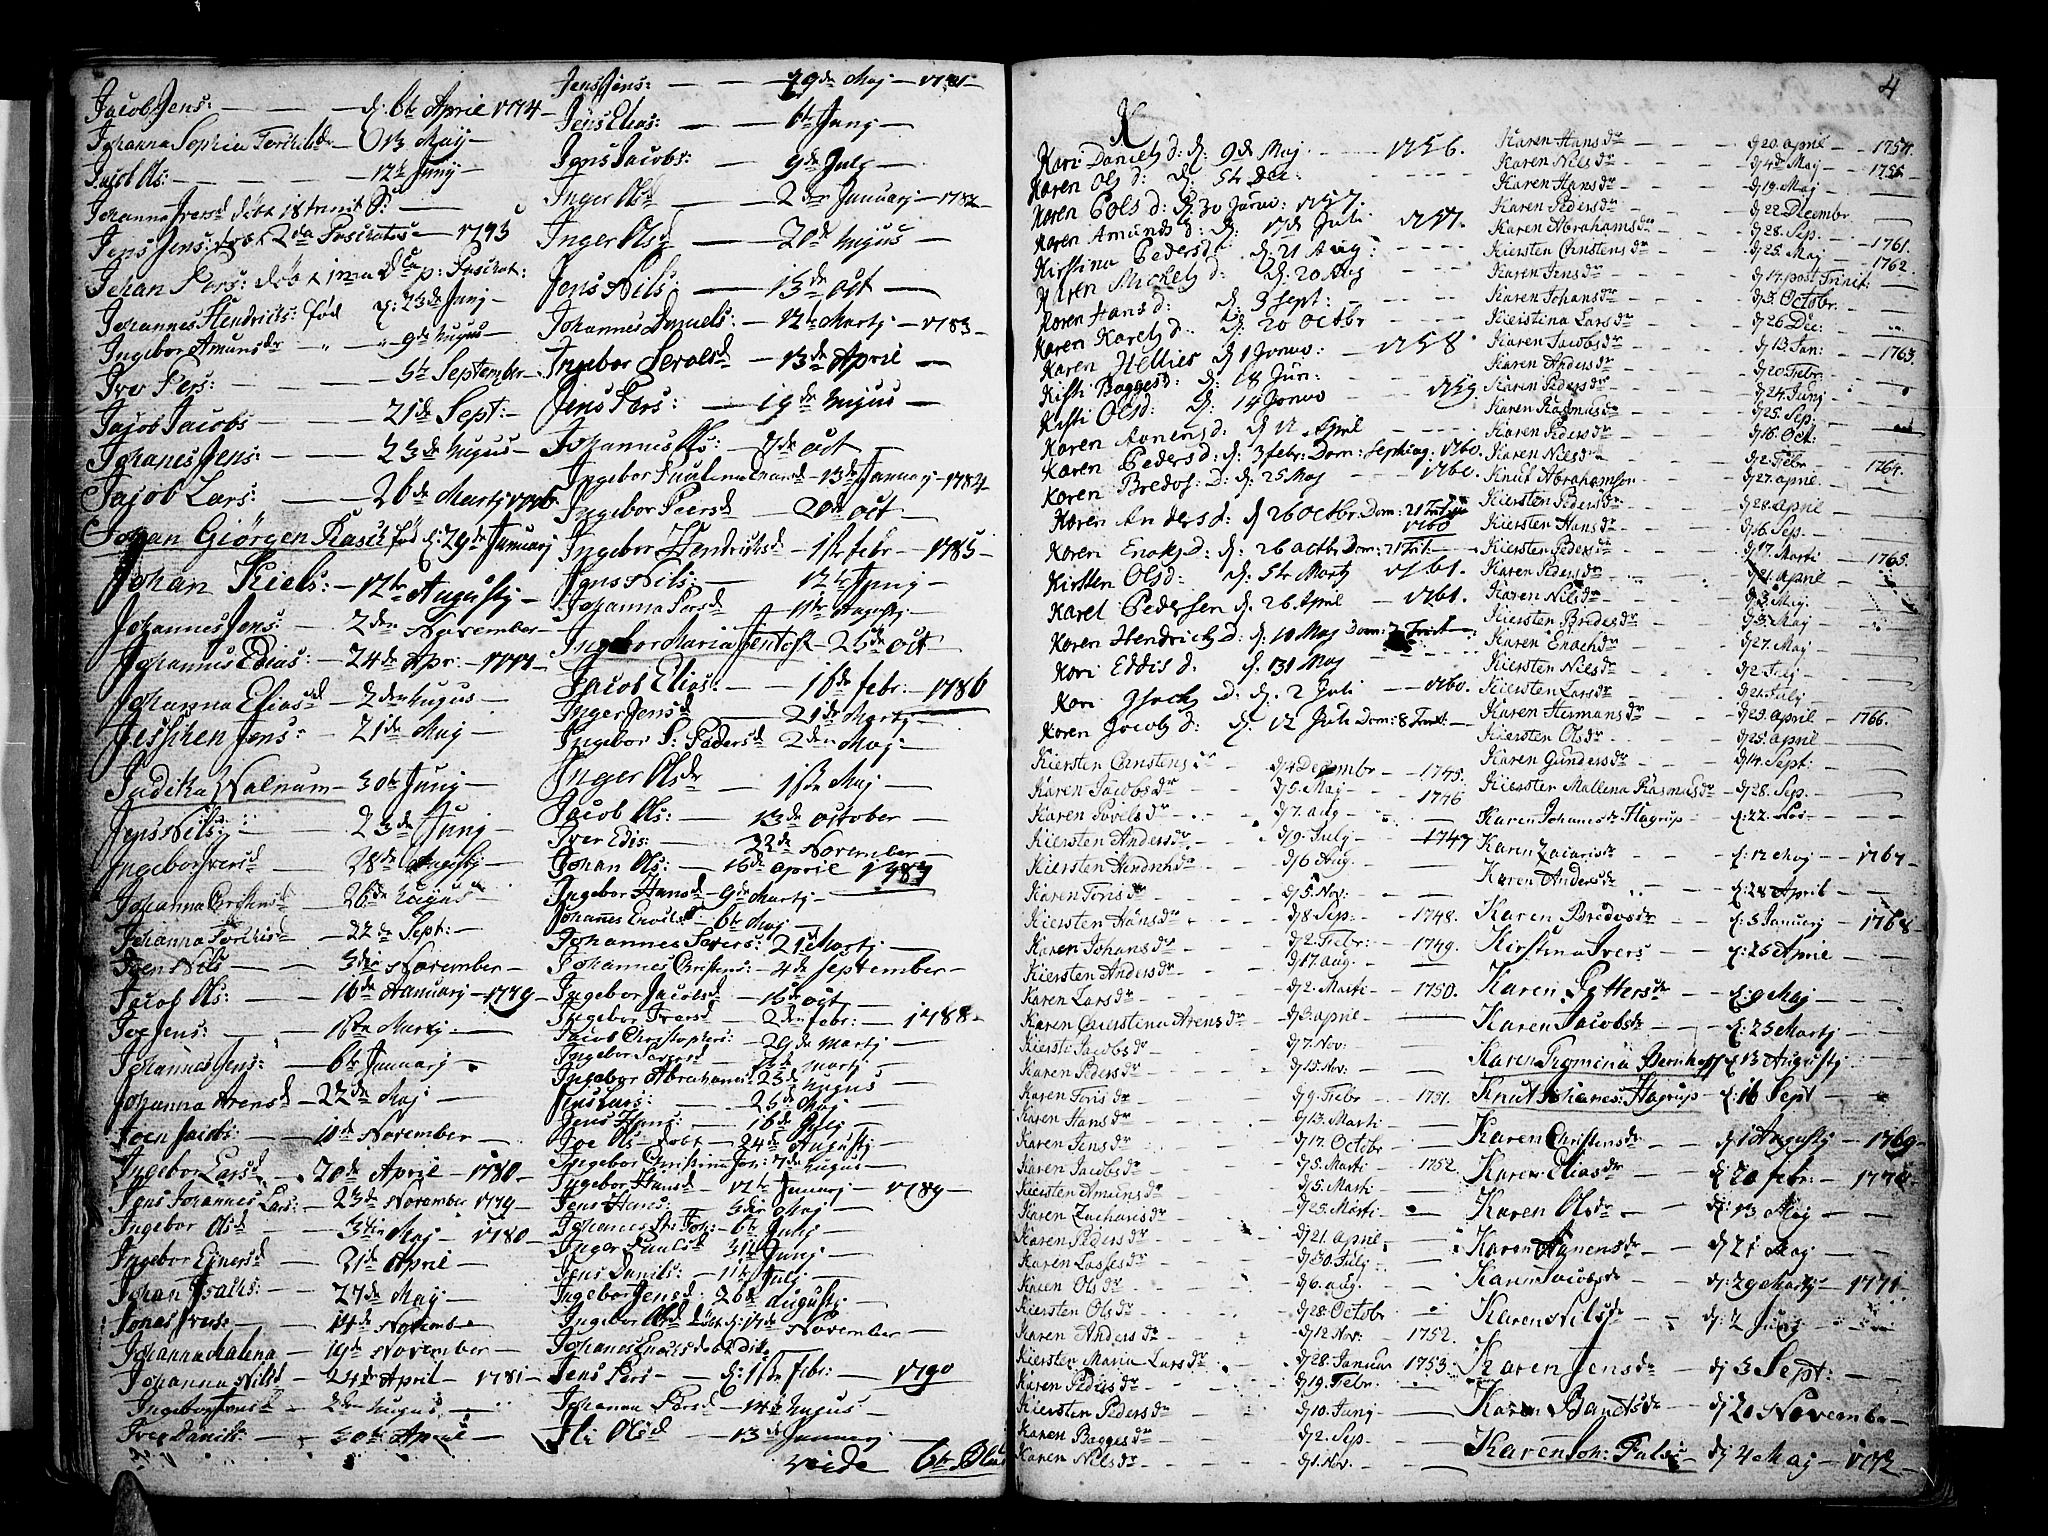 Jacob Jens: — — d. 6te April 1774
Johanna Sophia Torchildsdr — 13 Maij —
Jacob Ols: — — 12te Junij
Johanna Iversd döbt 18 trinit S: —
Jens Jens: döbt 2da Paschatos — 1775
Johan Pers: döbt 1ma Dca p: Paschat:
Johannes Hendrichs: fød d: 23de Junj —
Ingebor Amunsdr — 9de
Iver Pers: — 5te September
Jacob Jacobs — 21de Sept: —
Johanes Jens: — 23de
Jacob Lars: — 26de Martj 1776
Johan Giörgen Rasch fød d: 29de Januarj
Johan Niels: — 12te Augustj —
Johannes Jens: — 2den November —
Johannes Edias: — 24de Apr: — 1777
Johanna Eliasd — 2den
Jesphen Jens: — 21de Maij
Judika Walnum — 30te Junij —
Jens Nils: — 23de Junij
Ingebor Iversd — 28de Augustj —
Johanna Christensd — 26de
Johanna Torchisd — 22de Sept: —
Joen Nils — 3die November —
Jacob Ols: — 16de Januarj — 1779
Joe Jens: — Martj —
Johannes Jens: — 6te Januarj —
Johanna Arensd — 22de Maj —
Joen Jacobs: — 10de November —
Ingebor Larsd — 20de April — 1780
Jens Johannes Lars: — 23de November 1779
Ingebor Olsd — 3die Maj — 1780
Ingebor Ejnersd — 21de April —
Johan Isachs: — 27de Maij —
Jonas Ivers: — 14de November
Johanna Malena — 19de November —
Johanna Nilsd — 24de April — 1781
Ingebor Jensd — 2den
Iver Daniels: — 30te April —
Jens Jens: — 29de Maj — 1781
Jens Elias: — 6te Junj —
Jens Jacobs: — 9de Julj —
Inger Olsd — 2den Januarj — 1782
Inger Olsd — 20de
Jens Nils: — 13de oct —
Johannes Samuels: — 12te Martj — 1783
Ingebor Serolsd — 13de April —
Jens Pers: — 19de
Johannes Ols: — 7de oct —
Ingebor Paulina — 13de Januarj — 1784
Ingebor Peersd — 20de oct —
Ingebor Hendrichsd — 1ste febr — 1785
Jens Nils: — 12te Junj —
Johanna Persd — 11te Augustj —
Ingebor Maria Jentoft — 25de oct
Jacob Elias: — 16de febr: — 1786
Inger Jensd — 21de Martj —
Ingebor P: Pedersd — 2den Maj —
Inger Olsdr — 1ste Maj —
Jacob Ols: — 13de october —
Iver Edis: — 22de November —
Johan Ols: — 16de april 1787
Ingebor Hansd — 9de Martj —
Johanes Enolds: — 6te Maj —
Johannes Sivers: 21de Martj —
Johannes Christens: — 4de September —
Ingebor Jacobsd — 16de oct
Ingebor Iversd — 2den febr: — 1788
Jacob Christophers: — 29de Martj —
Ingebor Siversd — Martj —
Ingebor Abrahams: 23de
Jens Lars: — 25de Maj —
Jens Hans: — 16de Julj —
Joe Ols döbt — 24de Augustj
Ingebor Christina Jon: 7de
Ingebor Hansd — 12te Januarj — 1789
Jens Hans: — 3die Maj —
Johanes Joh: 6te Julj
Inger Paulsd 31te Junj —
Jens Daniels: — 11te Julj —
Ingebor Jensd: 26de Augustj —
Ingebor Olsd döbt d: 17de November —
Johanes Enolds
Jens Pers — d: 1ste febr: — 1790
Johanna Persd — 14de
Ili Olsd — 13de Januarj —
vide 6te Blad
4
K
Kari Daniels d: d: 9de Maj — 1756.
Karen Ols d: d: 5te Dec: — — —
Karen Pols d: d: 30 Janu: 1757.
Karen Amunds d: d: 17de Juli 1757.
Kirstina Peders d: d: 21 Aug: — — —
Karen Michels d: d: 20 Aug — — —
Karen Hans d: d: 3 Sept: — — —
Karen Karels d: d: 20 Octbr — — —
Karen Hellies d 1 Janu: — 1758.
Kisti Bagges d: d: 18 Jun: — — —
Kisti Ols d: d: 14 Janu — 1759.
Karen Arnens d: d 12 April — — —
Karen Peders d: d: 3 febr: Dom: Septuag: 1760.
Karen Bredes: D: d: 25 Maj — 1760.
Karen Anders d: d 26 Octbr. Dom: 21 Trin: 1760
Karen Enoks d: d: 26 Octbr Dom: 21 Trit: —
Kirsten Ols d: d: 5te Martj 1761.
Karel Pedersen d: 26 April — 1761.
Karen Hendrichs d: d: 10 Maj Dom: Trinit —
Kari Eddis d: d: 31 Maj — — —
Kari Isachs D: d: 2 Juli — 1760.
Karen Jacobs d: d: 12 Juli Dom: 8 Trinit: —
Kiersten Christens dr — d 4 Decembr — 1745.
Karen Jacobs dr — d 5. Maj — 1746
Karen Povels dr — d 7. aug —
Kiersten Anders dr — d 9. Julj — 1747
Kiersten Hendrik dr — d 6 Aug. —
Karen Toris dr — d 5. Nov: —
Kiersten Hans dr — d 8 Sep: — 1748.
Karen Johans dr — d 2. Febr: — 1749.
Kiersten Anders dr — d 17. aug. —
Karen Lars dr — d 2. Marti — 1750.
Karen Chierstina Arens dr — d 3. april —
Kiersti Jacobs dr — d 7. Nov: —
Karen Peders dr — d 15. Nov: —
Karen Toris dr — d 9. Febr — 1751.
Karen Hans dr — d 13. Marti —
Karen Jens dr — d 17. Octobr —
Karen Jacobs dr — d 5. Marti — 1752.
Kiersten Amuns dr — d 5. Marti —
Karen Zacharis dr — d 25. Marti —
Karen Peders dr — d 21. april —
Karen Lasses dr — d 30. Julj —
Karen Ols dr — d 6. aug. —
Kiersten Ols dr — d 28. Octobr —
Karen Anders dr — d 12 Nov: — 1752.
Kiersten Maria Lars dr — d 28. Januar 1753.
Karen Peders dr — d 19. Febr. —
Kiersten Peders dr — d 10. Junj —
Karen Bagges dr — d 2. Sep. —
Karen Nils dr — d 1. Nov. —
Karen Hans dr — d 20. april — 1754.
Karen Nils dr — d 4de Maj — 1755.
Karen Hans dr — d 19. Maj —
Karen Peders dr — d 22 Decembr. —
Karen Abrahams dr — d 28. Sep. —
Kiersten Christens dr — d 25. Maj — 1761.
Karen Jens dr — d 17. post Trinit: 1762.
Karen Johans dr — d 3. Octobr. —
Kierstina Lars dr — d 26 Dec: —
Karen Jacobs dr — d 13. Jan: — 1763.
Karen Anders dr — d 20. Febr. —
Karen Peders dr — d 24. Junj —
Karen Rasmus dr — d 25. Sep. —
Karen Peders dr — d 16. Oct: —
Karen Nils dr — d 2. Febr — 1764.
Knut Abrahamsen — d 27. april. —
Kiersten Peders dr — d 28. april —
Kiersten Hans dr — d 16. Sep. —
Kiersten Peders dr — d 17. Marti — 1765.
Karen Peders dr — d 21. april —
Karen Nils dr — d 3. Maj. —
Kiersten Bredes dr — d 3. Maj —
Karen Enoch dr — d 27. Maj —
Kiersten Niels dr — d 2. Julj —
Kiersten Lars dr — d 21. Julij —
Karen Hermans dr — d 29. april — 1766.
Kiersten Ols dr — d 25. april —
Karen Gunders dr — d 14. Sept: —
Kiersten Mallena Rasmus dr — d 28. Sep. —
Karen Johannes dr Hagrup — d: 22.
Karen Zacaris dr — d: 12 Maj — 1767 —
Karen Anders dr — d: 28 April —
Karen Bredes dr — d: 3 Januarj — 1768 —
Kirstina Ivers — d: 25 April —
Karen Petters dr — d: 9 Maj —
Karen Jacobs dr — d: 25 Martj —
Karen Tromina Bernhoft d 13 Augustj —
Knut Johanes: Hagrup — d: 16 Sept —
Karen Christens dr — d 1 Augustj — 1769 —
Karen Elias dr — d 20 febr: — 1770
Karen Ols dr — d: 13 Maj —
Karen Arnens dr — d 21 Maj —
Karen Jacobs dr — d: 29 Martj — 1771.
Karen Nils dr — d: 2 Junj —
Karen Jens dr — d 3 Sept: —
Karen Bandts dr — d 20 November —
Karen Joh: Fals dr — d 4 Maj — 1772 —